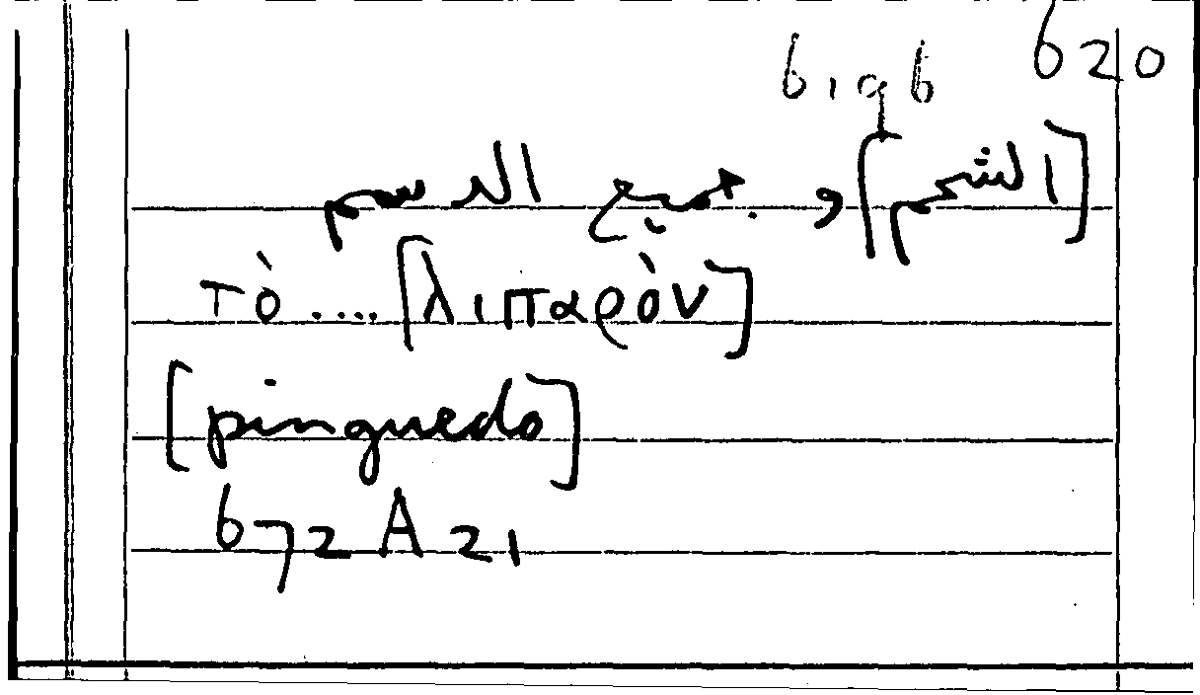 620
6,9 6
[الشحم] و جميع الدسم
τὸ .... [λιπαρὸν]
[pinguedo]
672 A 21